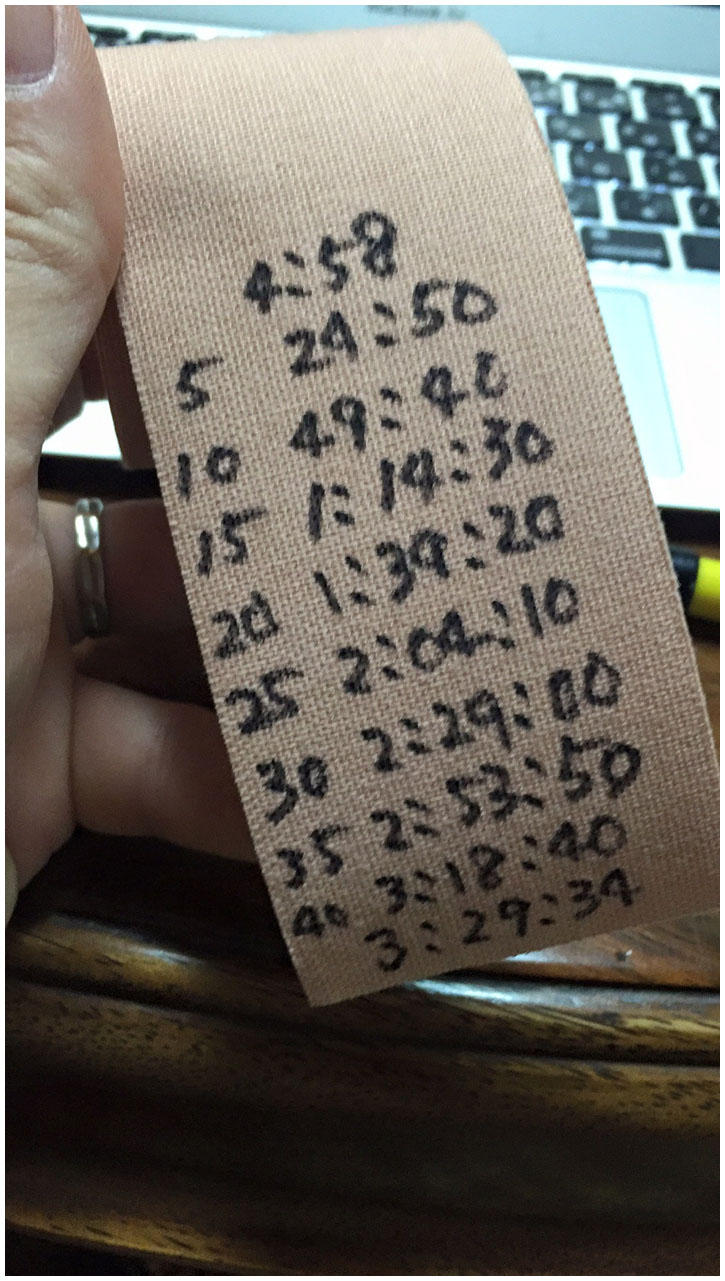 4:58
5 24:50
10 49:40
15 1:14:30
20 1:39:20
25 2:04:10
30 2:29:00
35 2:53:50
40 3:18:40
3:29:34